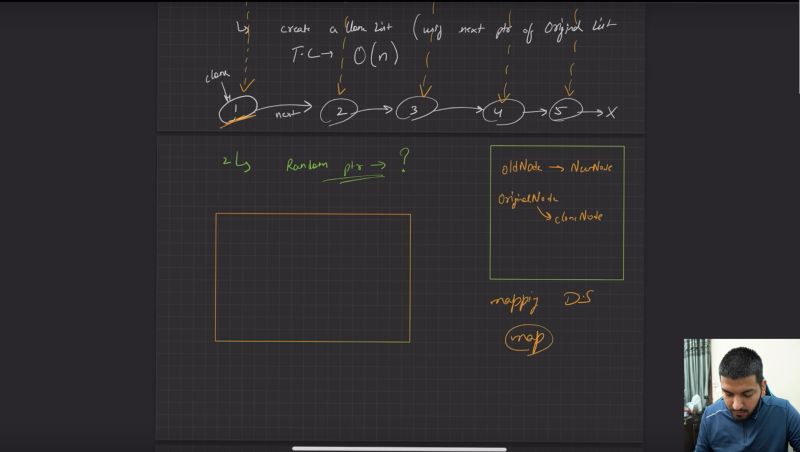 ↳ create a Clone List (using next ptr of Original List
T.C → O(n)
clone
1 next 2 3 4 5 → X
2 ↳ Random ptr → ?
oldNode → NewNode
OriginalNode
↳ cloneNode
mapping D.S
map